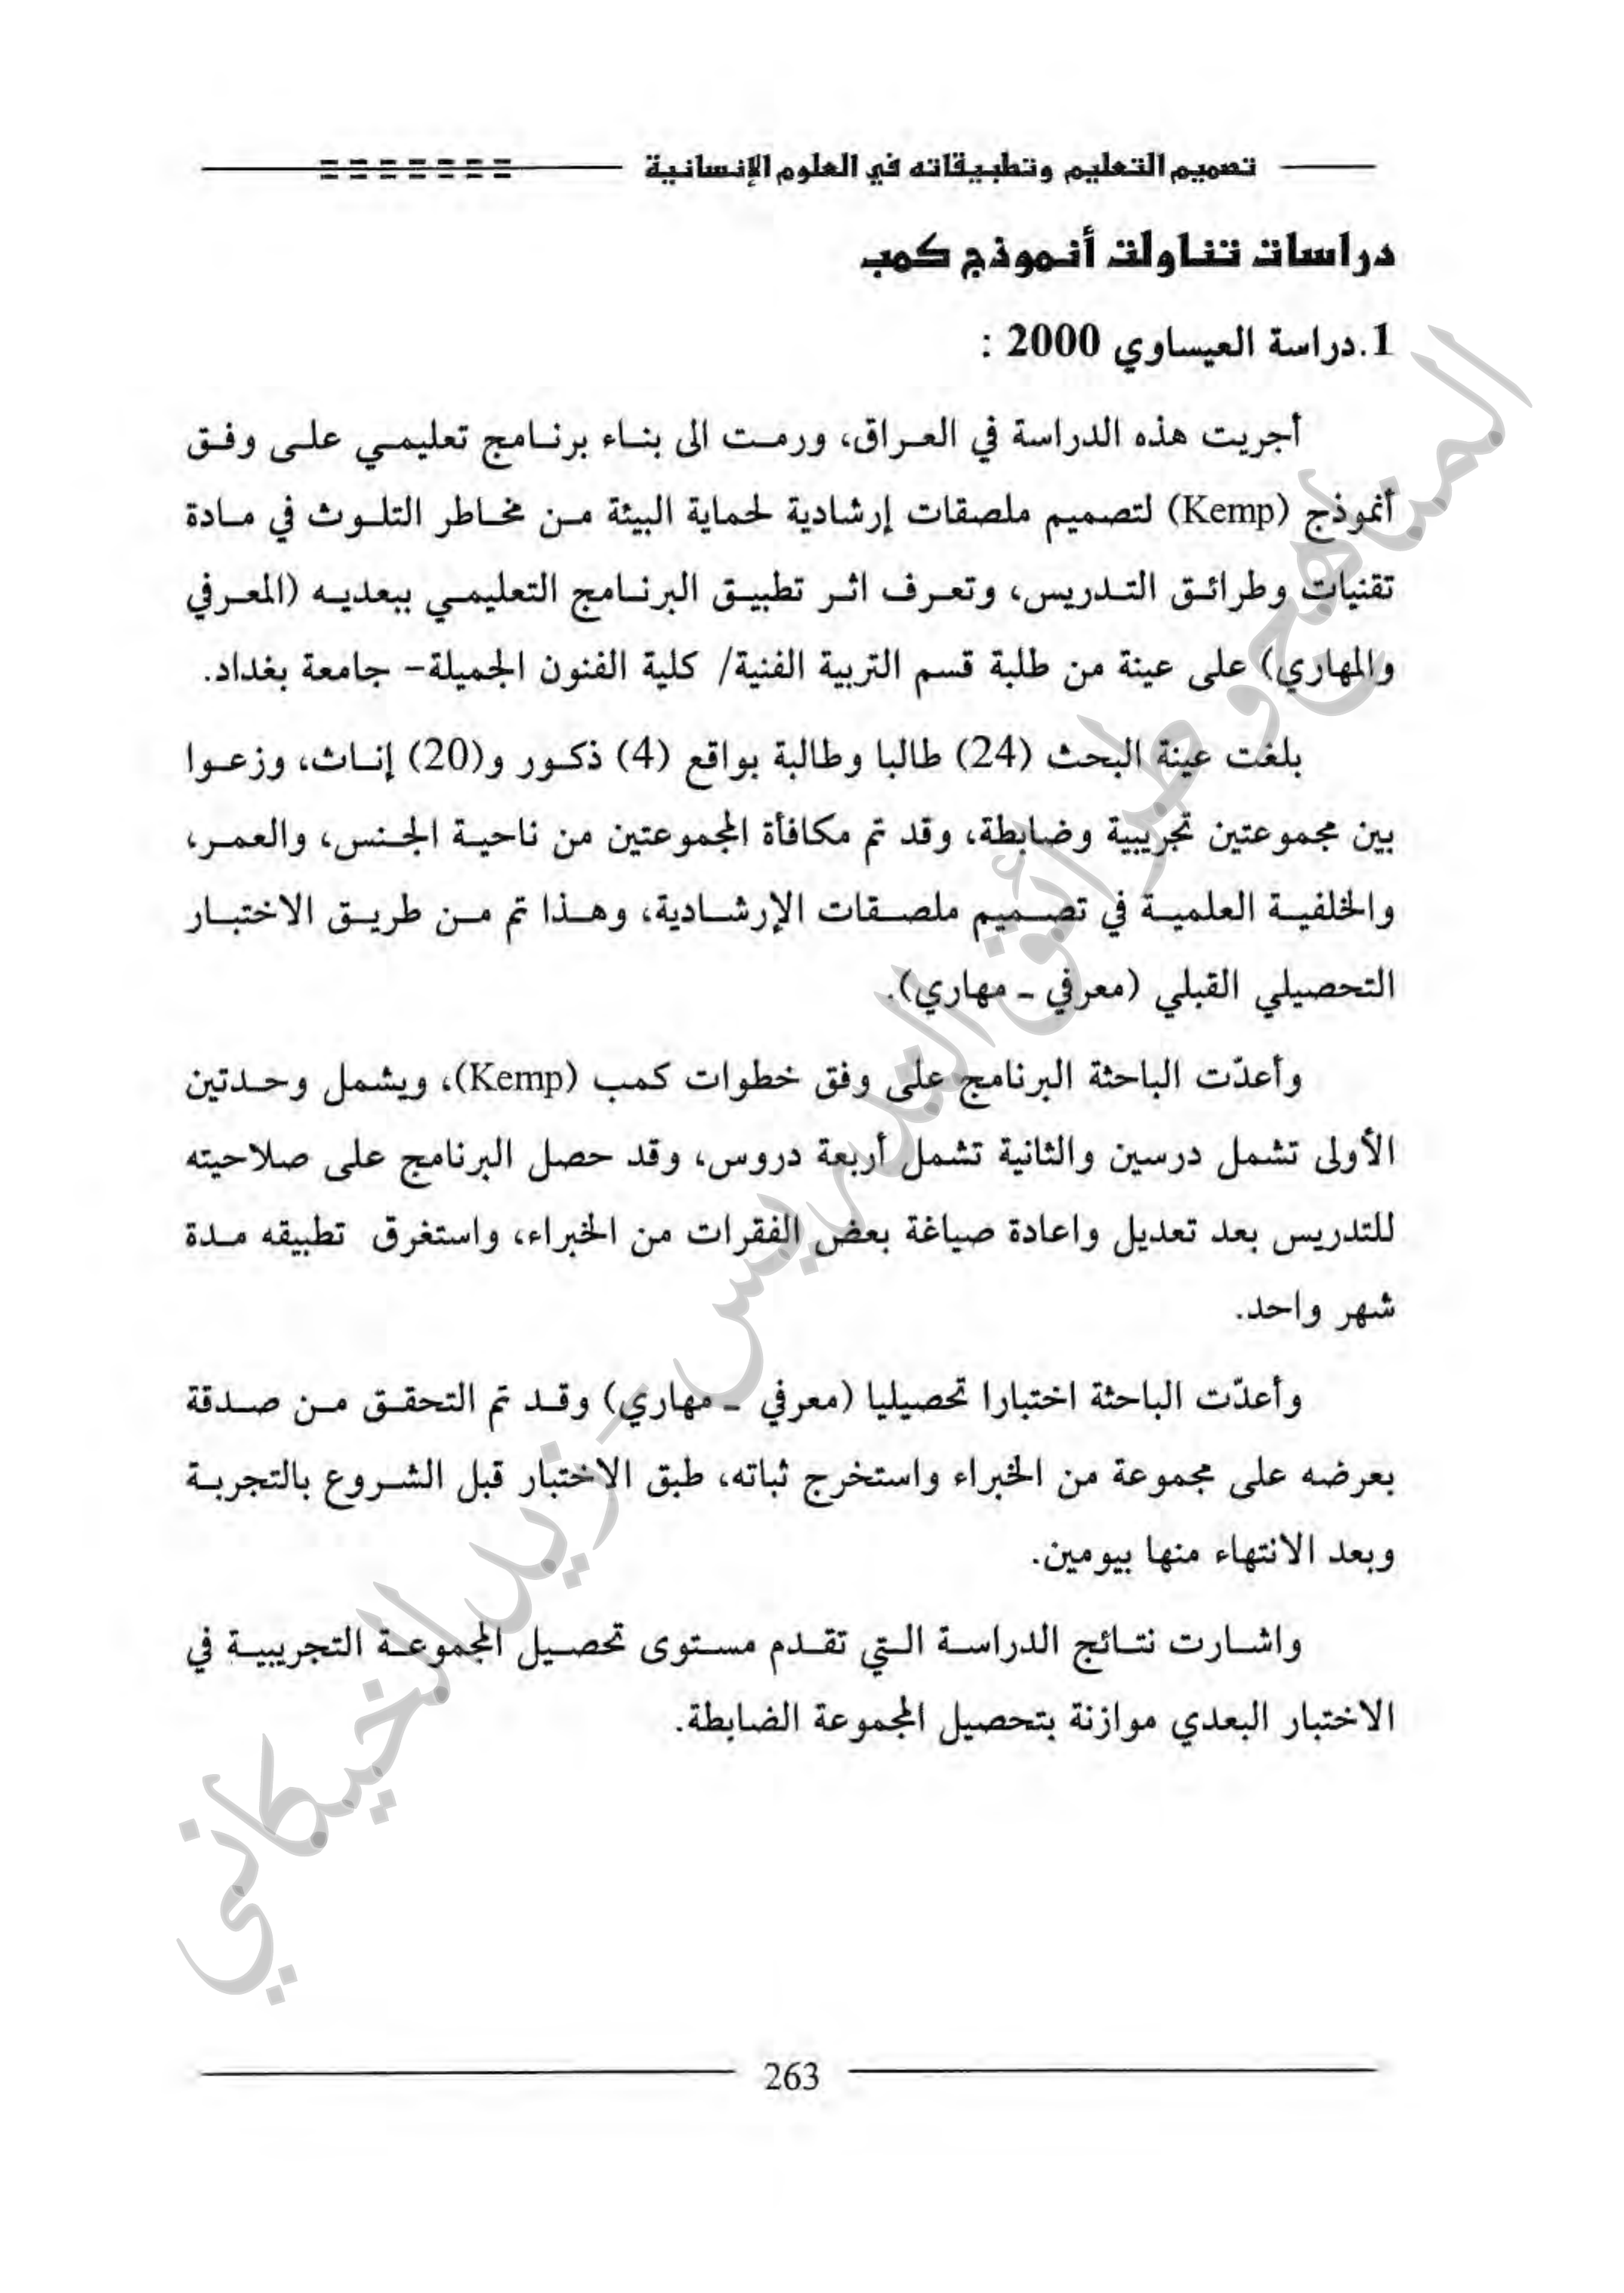 تصميم التعليم وتطبيقاته في العلوم الإنسانية
دراسات تناولت أنموذج كمب
1.دراسة العيساوي 2000 :
أجريت هذه الدراسة في العراق، ورمت الى بناء برنامج تعليمي على وفق
أنموذج (Kemp) لتصميم ملصقات إرشادية لحماية البيئة من مخاطر التلوث في مادة
تقنيات وطرائق التدريس، وتعرف اثر تطبيق البرنامج التعليمي ببعديه (المعرفي
والمهاري) على عينة من طلبة قسم التربية الفنية/ كلية الفنون الجميلة- جامعة بغداد.
بلغت عينة البحث (24) طالبا وطالبة بواقع (4) ذكور و(20) إناث، وزعوا
بين مجموعتين تجريبية وضابطة، وقد تم مكافأة المجموعتين من ناحية الجنس، والعمر،
والخلفية العلمية في تصميم ملصقات الإرشادية، وهذا تم من طريق الاختبار
التحصيلي القبلي (معرفي - مهاري).
وأعدّت الباحثة البرنامج على وفق خطوات كمب (Kemp)، ويشمل وحدتين
الأولى تشمل درسين والثانية تشمل أربعة دروس، وقد حصل البرنامج على صلاحيته
للتدريس بعد تعديل واعادة صياغة بعض الفقرات من الخبراء، واستغرق تطبيقه مدة
شهر واحد.
وأعدّت الباحثة اختبارا تحصيليا (معرفي - مهاري) وقد تم التحقق من صدقة
بعرضه على مجموعة من الخبراء واستخرج ثباته، طبق الاختبار قبل الشروع بالتجربة
وبعد الانتهاء منها بيومين.
واشارت نتائج الدراسة التي تقدم مستوى تحصيل المجموعة التجريبية في
الاختبار البعدي موازنة بتحصيل المجموعة الضابطة.
263
المناهج وطرائق التدريس - زيد الخيكاني